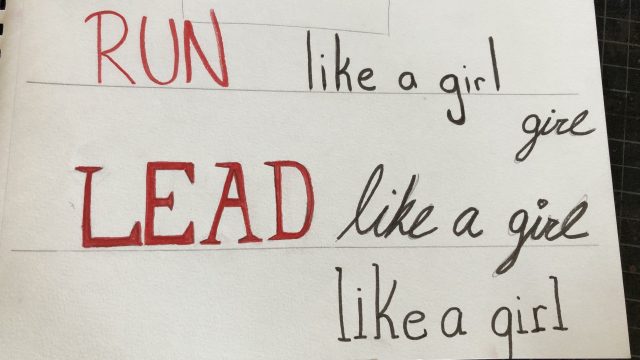 RUN like a girl
girl
LEAD like a girl
like a girl